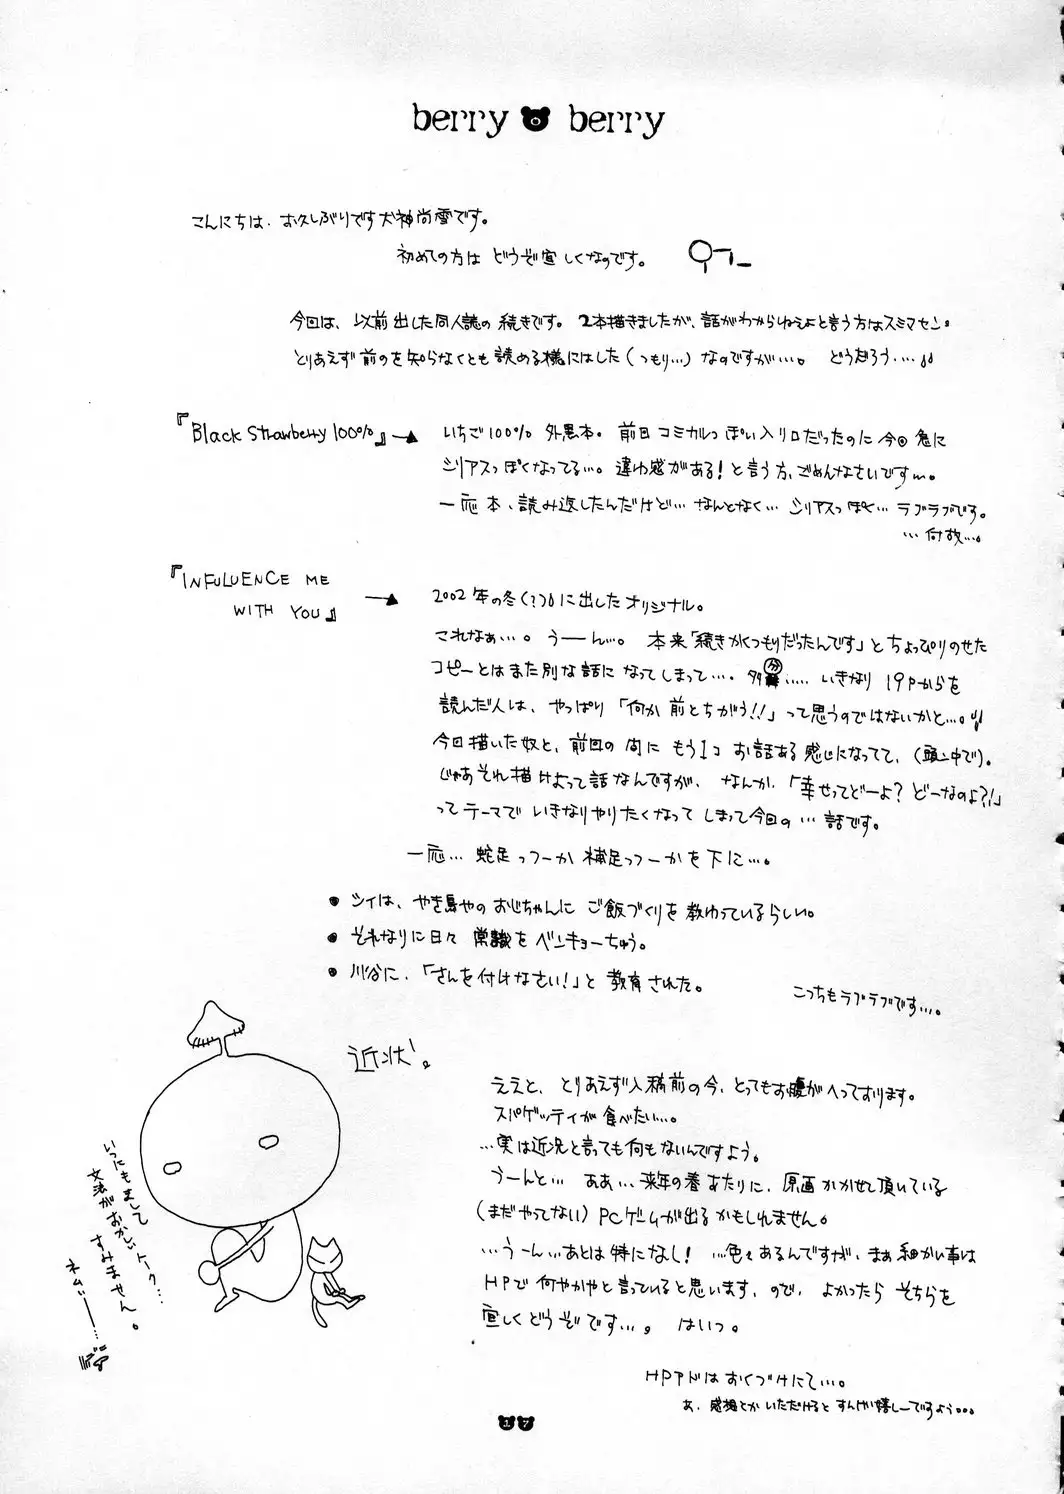 berry berry
こんにちは、お久しぶりです犬神尚雪です。
初めての方は どうぞ宜しくなのです。
今回は、以前出した同人誌の続きです。2本描きましたが、話がわからねぇよと言う方はスミマセン。
とりあえず前のを知らなくとも読める様にはした(つもり…)なのですが…。 どうだろう….
『Black Strawberry 100%』→
いちご100% 外黒本。前回コミカルっぽい入り口だったのに今回急に
シリアスっぽくなってる…。違わ感がある!と言う方、ごめんなさいです。
一応本、読み返したんだけど… なんとなく… シリアスっぽく… ラブラブです。
… 何故…。
『INFULUENCE ME
WITH YOU』→
2002年の冬(?)に出したオリジナル。
これなぁ…。うーん…。本来「続きかくつもりだったんです」とちょっぴりのせた
コピーとはまた別な話になってしまって…. 多分….. いきなり19Pからを
読んだ人は、やっぱり「何か前とちがう!!」って思うのではないかと…。
今回描いた奴と、前回の間に もう1コ お話ある感じになってて、(頭ン中で)。
じゃあそれ描けよって話なんですが、なんか、「幸せってどーよ?どーなのよ?!」
ってテーマで いきなりやりたくなって しまって今回の… 話です。
一応… 蛇足っつーか 補足っつーかを下に…。
● シィは、やき鳥やのおじちゃんに ご飯づくりを教わっているらしい。
● それなりに日々 常識を ベンキョーちゅう。
● 川谷に、「さんを付けなさい!」と 教育された。
こっちもラブラブです…。
近状。
ええと、とりあえず入稿前の今、とってもお腹がへっております。
スパゲッティが食べたい…。
…実は近況と言っても何もないんですよう。
うーんと… ああ… 来年の春あたりに、原画かかせて頂いている
(まだやってない) PCゲームが出るかもしれません。
…うーん…あとは特になし! …色々あるんですが、まぁ細かい事は
HPで 何やかやと言っていると思います、ので、よかったら そちらを
宜しくどうぞです…。 はいっ。
HPアドはおくづけにて…。
あ、感想とか いただけると すんげい嬉しーですよう。。。
いつにもまして
文法がおかしいトーク….
すみません。
ネムいー…。
17